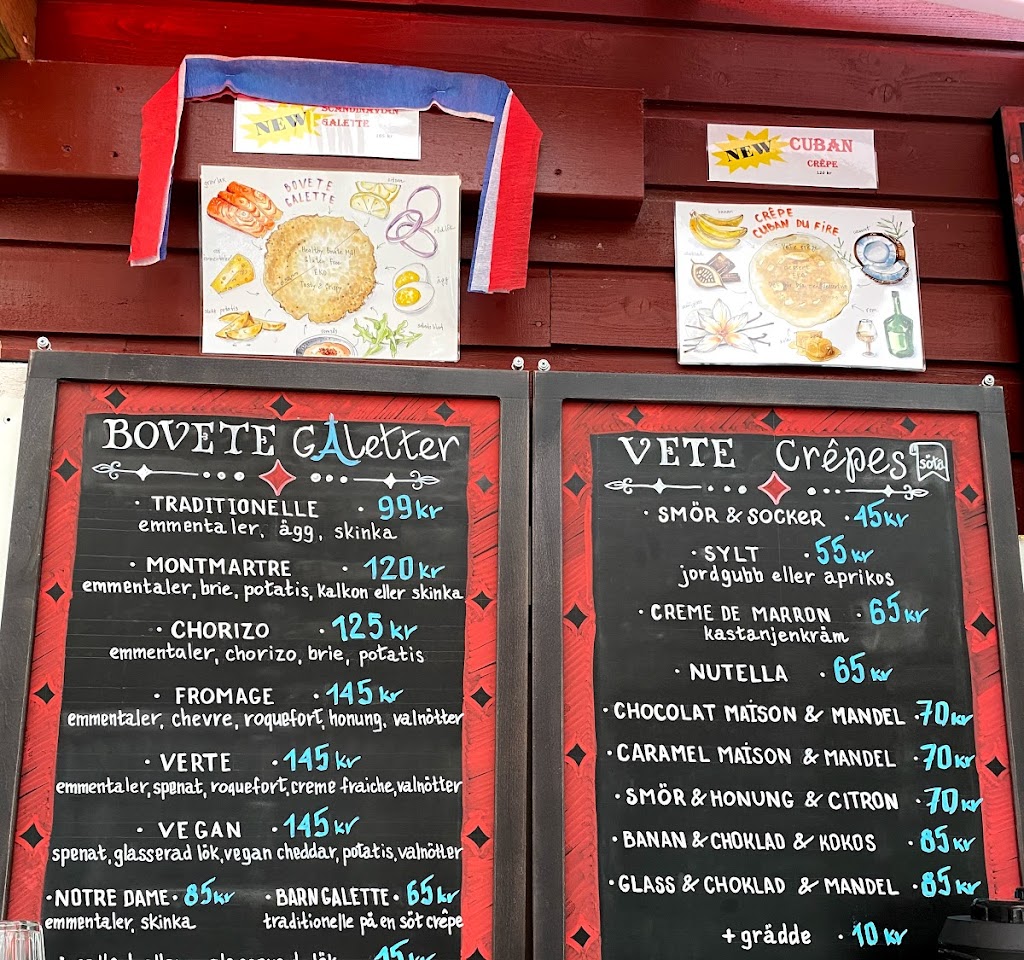 NEW
SCANDINAVIAN
GALETTE
BOVETE
GALETTE
Tasty & Crispy
ägg
NEW
CUBAN
CRÊPE
CRÊPE
CUBAN DU FIRE
BOVETE GALetter
· TRADITIONELLE · 99 kr
emmentaler, ägg, skinka
· MONTMARTRE · 120 kr
emmentaler, brie, potatis, kalkon eller skinka
· CHORIZO · 125 kr
emmentaler, chorizo, brie, potatis
· FROMAGE · 145 kr
emmentaler, chevre, roquefort, honung, valnötter
· VERTE · 145 kr
emmentaler, spenat, roquefort, creme fraiche, valnötter
· VEGAN · 145 kr
spenat, glasserad lök, vegan cheddar, potatis, valnötter
· NOTRE DAME · 85 kr
emmentaler, skinka
· BARNGALETTE · 65 kr
traditionelle på en söt crêpe
VETE Crêpes söta
· SMÖR & SOCKER · 45 kr
· SYLT · 55 kr
jordgubb eller aprikos
· CREME DE MARRON · 65 kr
kastanjenkräm
· NUTELLA · 65 kr
· CHOCOLAT MAISON & MANDEL · 70 kr
· CARAMEL MAISON & MANDEL · 70 kr
· SMÖR & HONUNG & CITRON · 70 kr
· BANAN & CHOKLAD & KOKOS · 85 kr
· GLASS & CHOKLAD & MANDEL · 85 kr
+ grädde · 10 kr